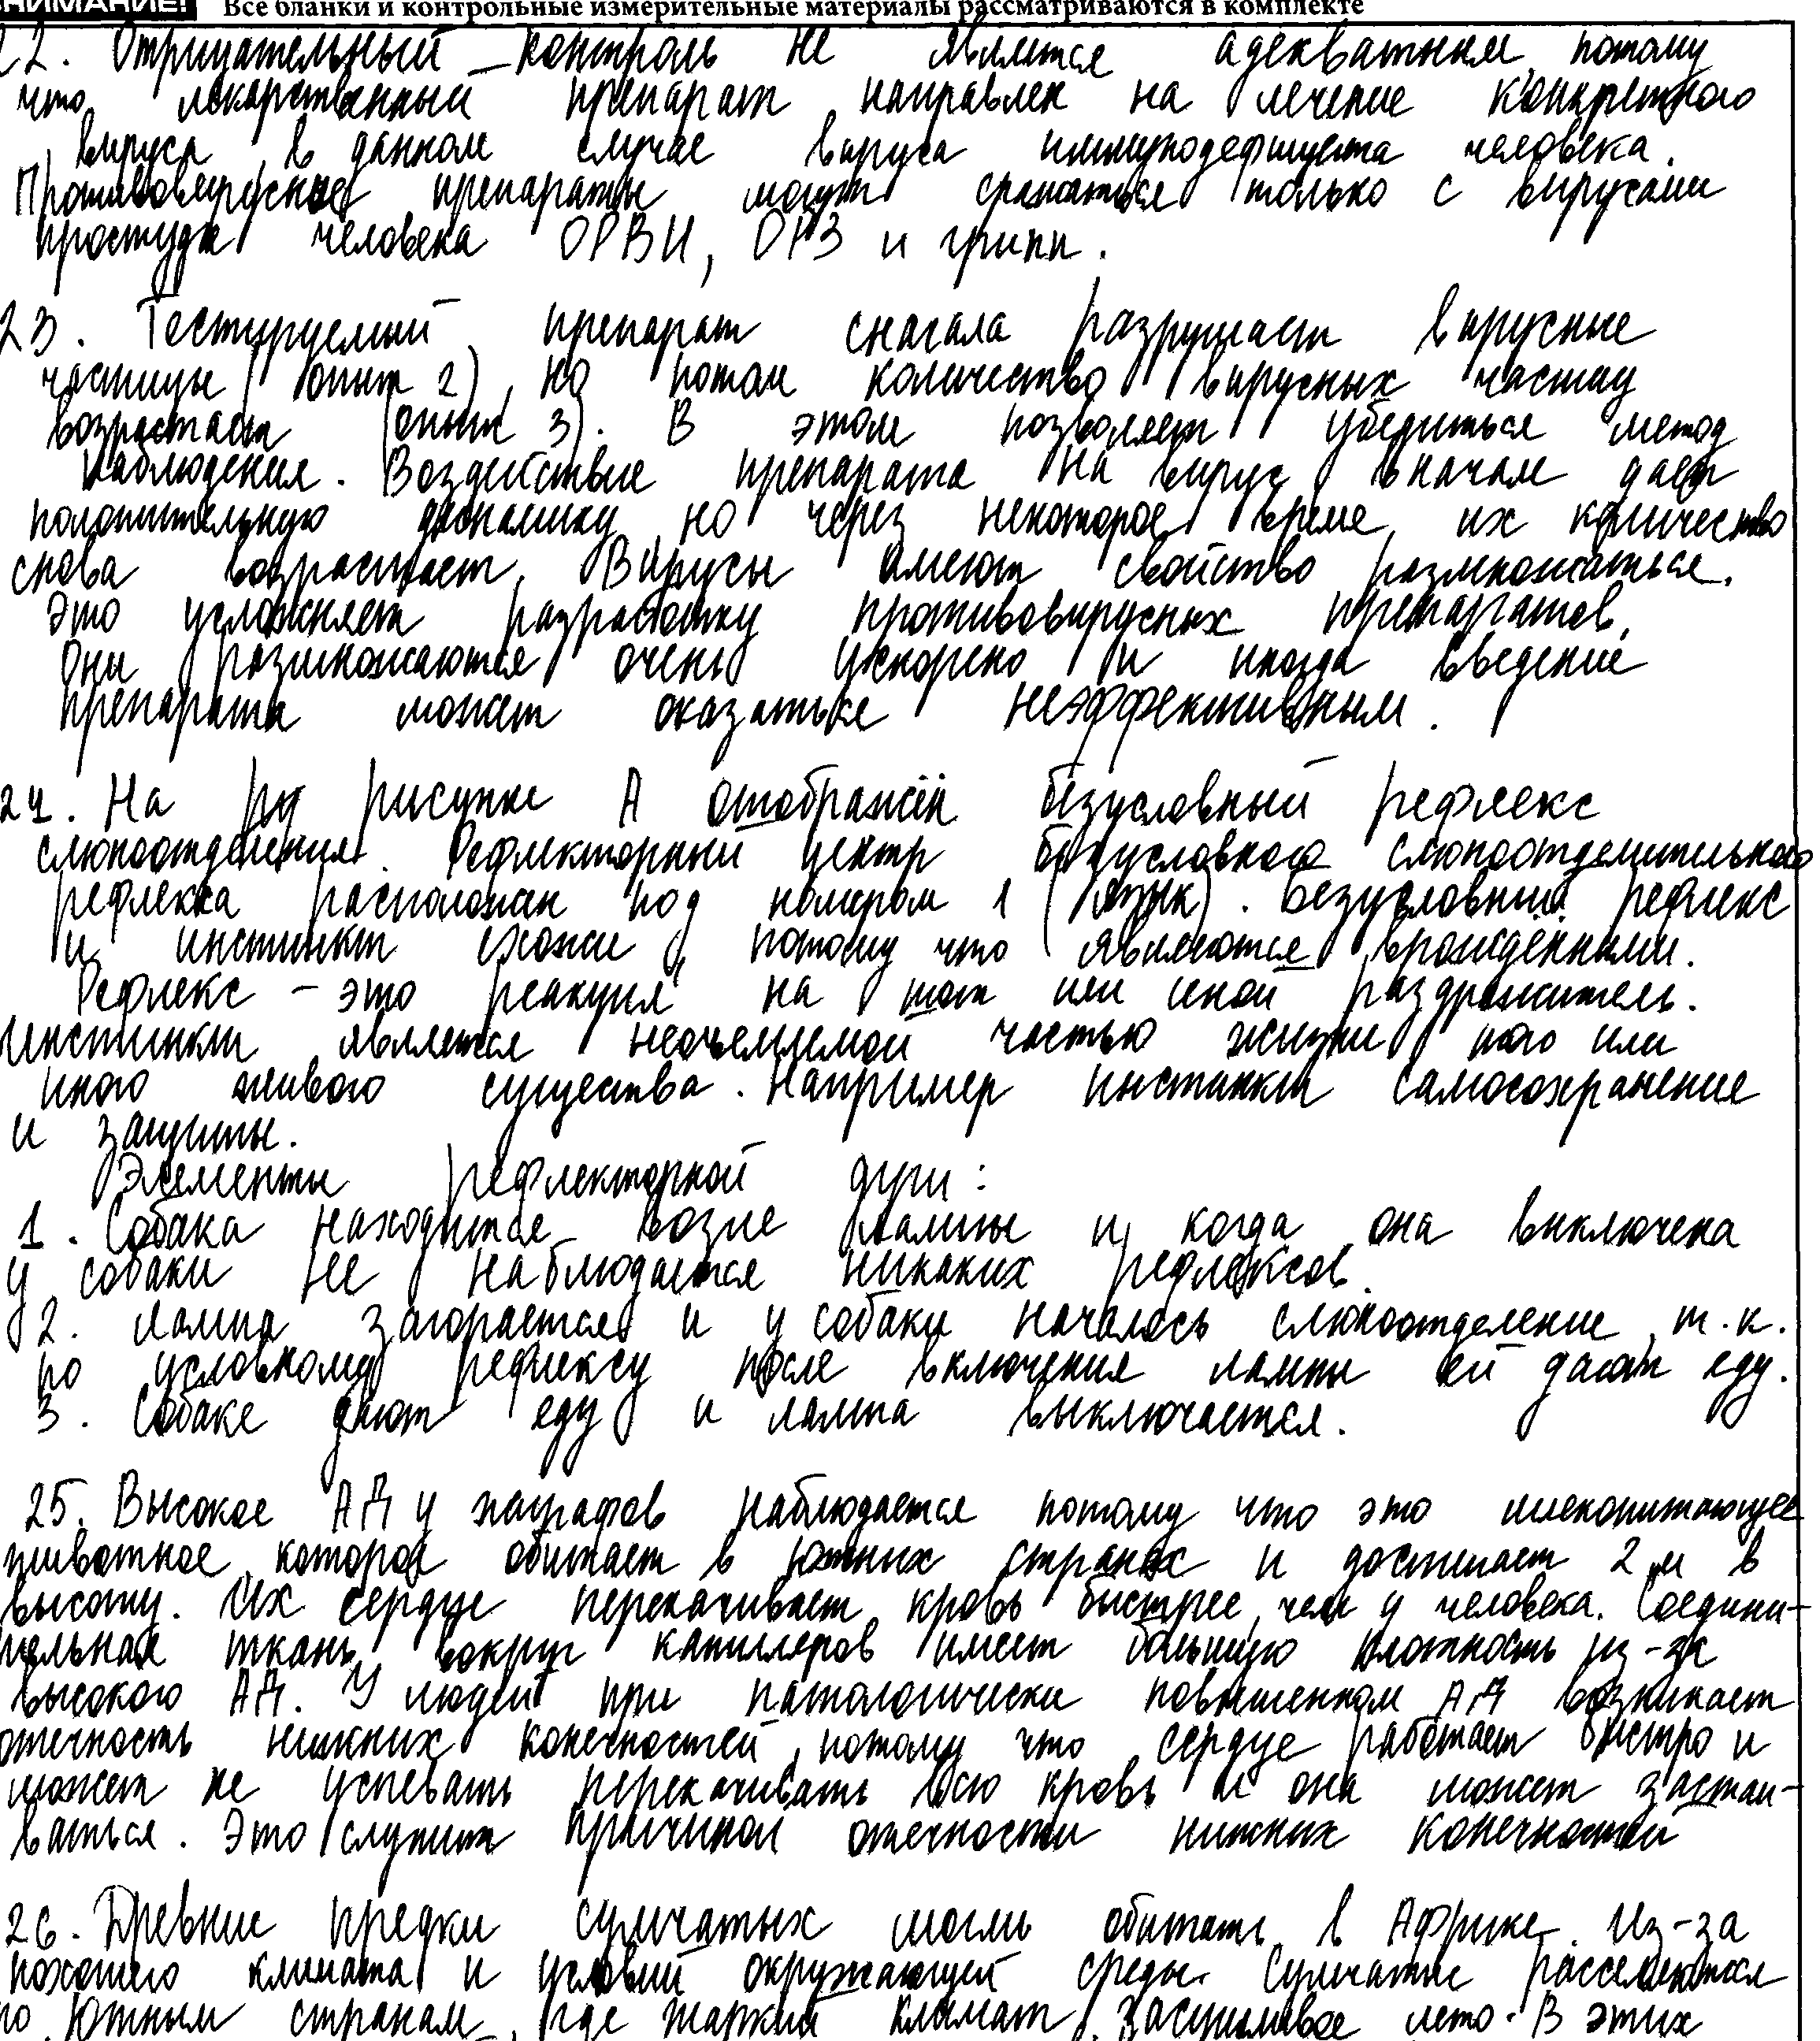 ВНИМАНИЕ! Все бланки и контрольные измерительные материалы рассматриваются в комплекте
22. Отрицательный контроль не является адекватным, потому
что лекарственный препарат направлен на лечение конкретного
вируса, в данном случае вируса иммунодефицита человека.
Противовирусные препараты могут сражаться только с вирусами
простуды человека ОРВИ, ОРЗ и грипп.
23. Тестируемый препарат сначала разрушает вирусные
частицы (опыт 2), но потом количество вирусных частиц
возрастает (опыт 3). В этом позволяет убедиться метод
наблюдения. Воздействие препарата на вирус вначале даёт
положительную динамику, но через некоторое время, их количество
снова возрастает. Вирусы имеют свойство размножаться.
Это усложняет разработку противовирусных препаратов.
Они размножаются очень ускорено и иногда введение
препарата может оказаться неэффективным.
24. На рисунке А отображён безусловный рефлекс
слюноотделения. Рефлекторный центр безусловного слюноотделительного
рефлекса расположен под номером 1 (язык). Безусловный рефлекс
и инстинкт схожи, потому что являются врожденными.
Рефлекс - это реакция на тот или иной раздражитель.
Инстинкт является неотъемлемой частью жизни того или
иного живого существа. Например инстинкт самосохранение
и защиты.
Элементы рефлекторной дуги:
1. Собака находится возле лампы и, когда она выключена
у собаки не наблюдается никаких рефлексов.
2. Лампа загорается и у собаки началось слюноотделение, т.к.
по условному рефлексу после включения лампы ей дают еду.
3. Собаке дают еду и лампа выключается.
25. Высокое АД у жирафов наблюдается потому что это млекопитающее
животное, которое обитает в южных странах и достигает 2 м в
высоту. Их сердце перекачивает кровь быстрее, чем у человека. Соедини-
тельная ткань вокруг капилляров имеет большую плотность из-за
высокого АД. У людей при патологически повышенном АД возникает
отечность нижних конечностей, потому что сердце работает быстро и
может не успевать перекачивать всю кровь и она может застаи-
ваться. Это служит причиной отечности нижних конечностей
26. Древние предки сумчатых могли обитать в Африке. Из-за
похожего климата и условий окружающей среды. Сумчатые расселяются
по южным странам, где жаркий климат, засушливое лето. В этих